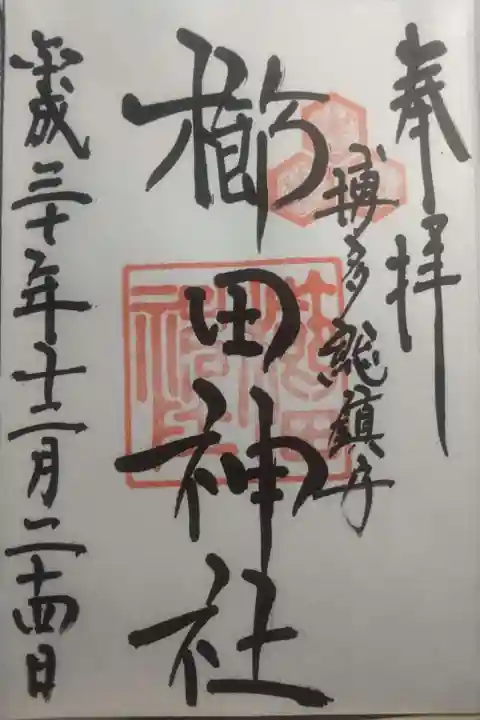 奉拝
博多総鎮守
櫛田神社
平成三十年十二月二十四日